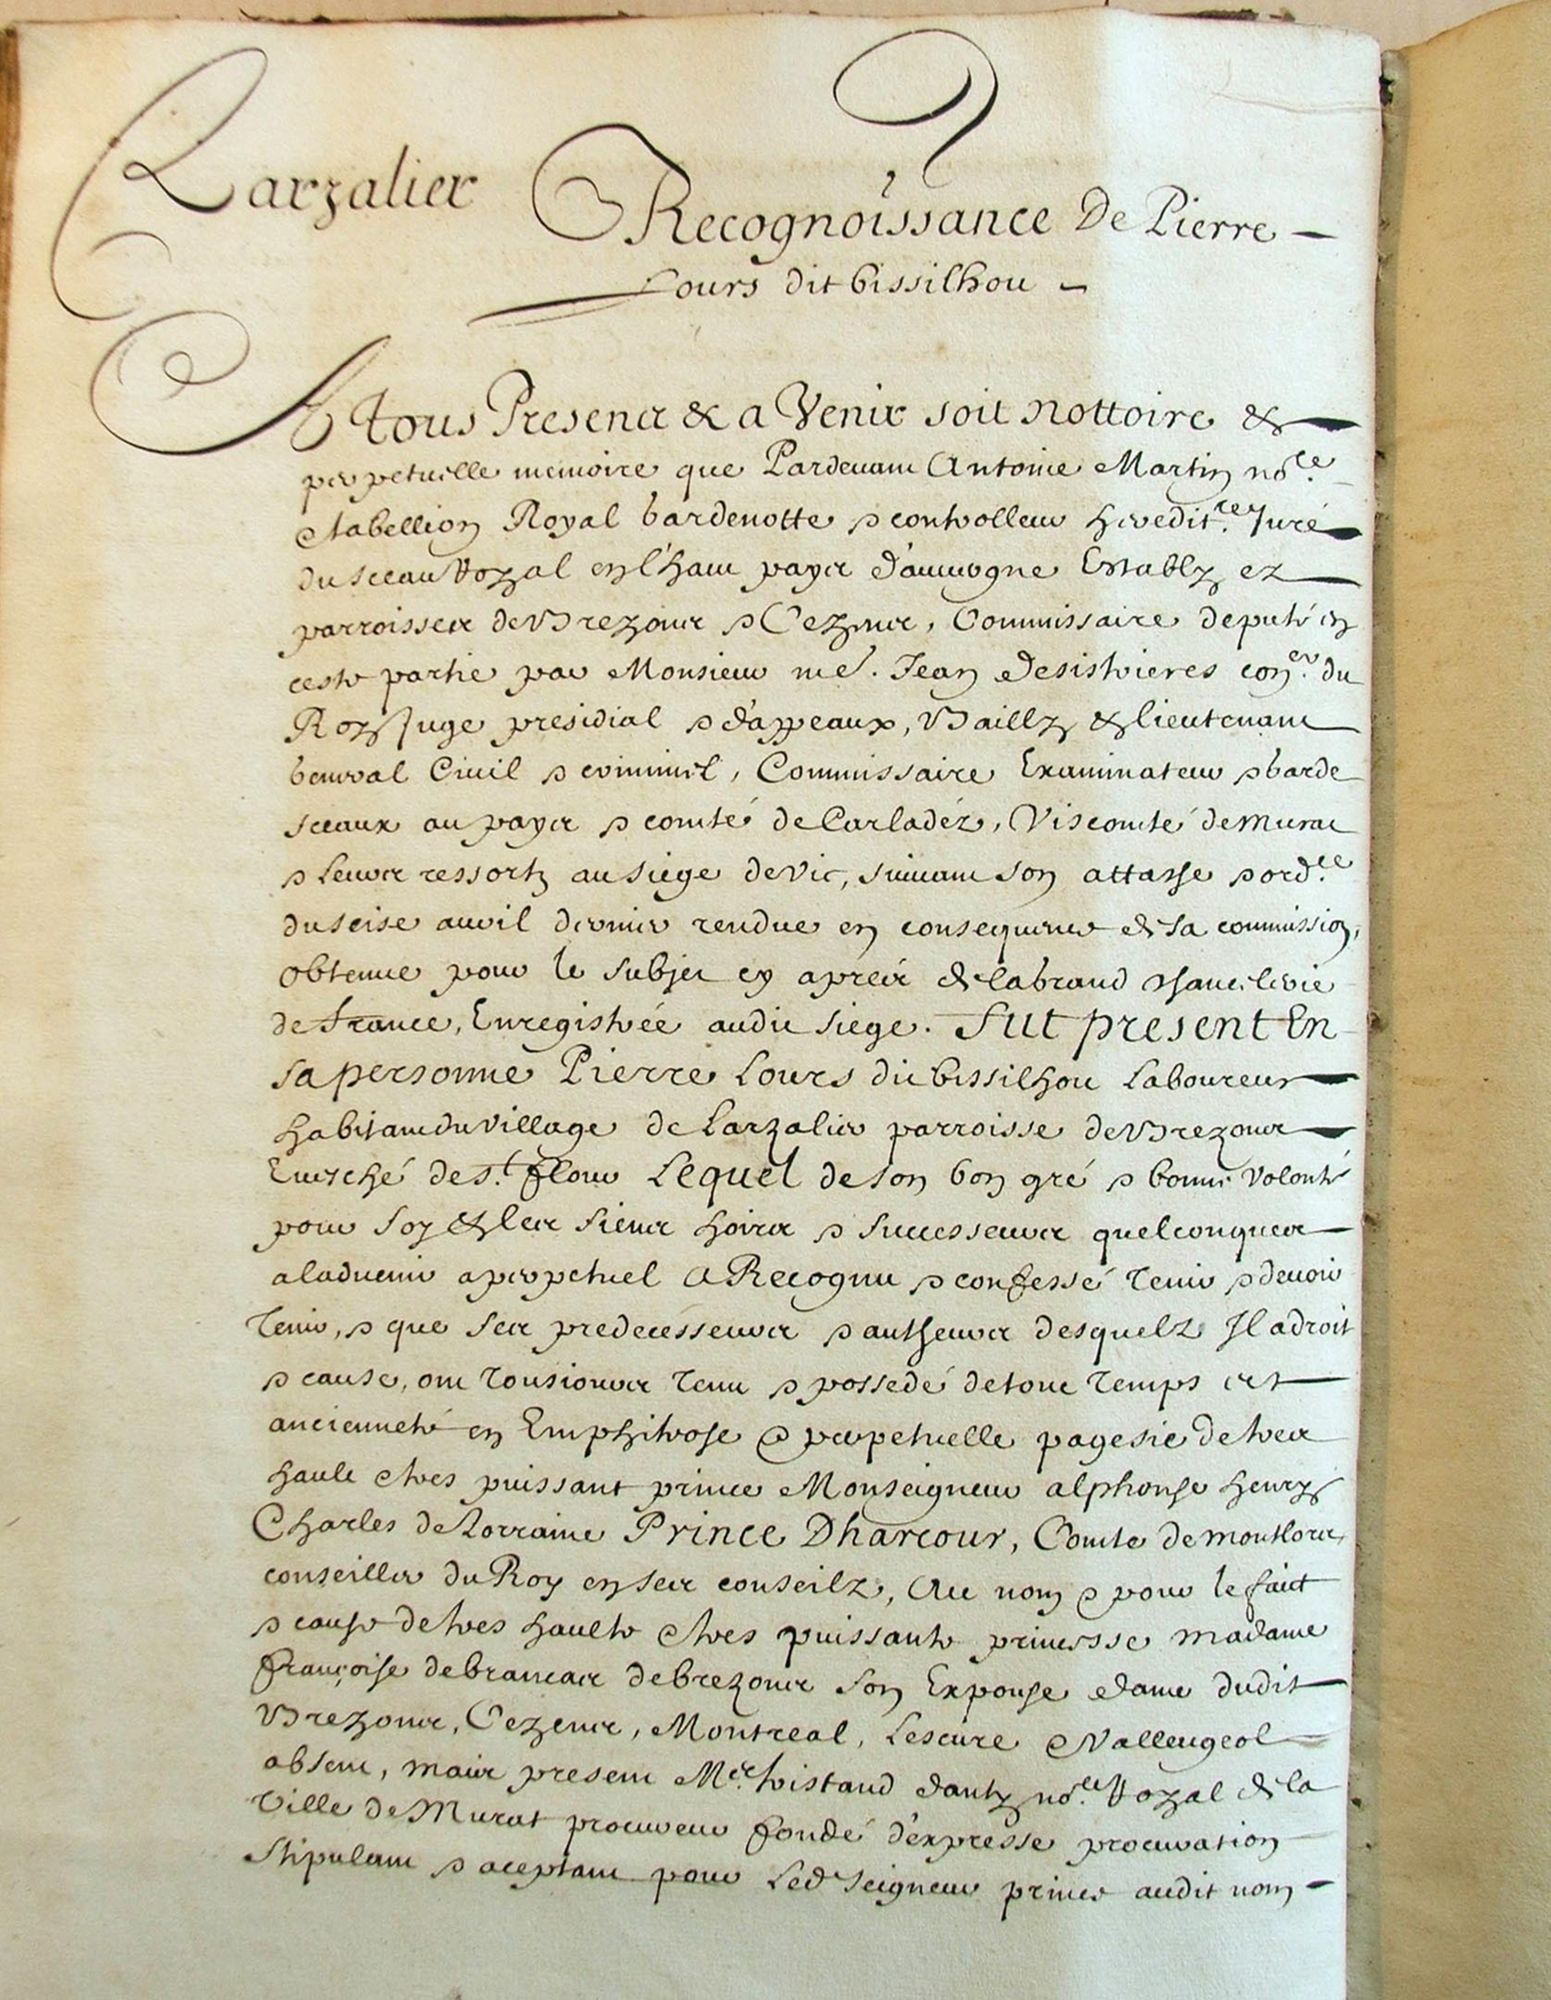 Larzalier
Recognoissance De Pierre
Lours dit bissilhou
A tous Presens & a Venir soit nottoire &
perpetuelle memoire que Pardevant Antoine Martin no.re
& tabellion Royal Gardenotte & controlleur heredit.re Juré
du sceau Royal en l'haut pays d'auvergne Estably ez
parroisses de Brezons & Cezens, Commissaire deputé en
ceste partie par Monsieur me. Jean Desistrieres con.er du
Roy Juge presidial & d'appeaux, Bailly & lieutenant
General Civil & criminel, Commissaire Examinateur & garde
sceaux au pays & comté de Carladéz, Viscomté de Murat
& Leurs ressortz au siege de Vic, suivant son attasse & ord.ce
du seise avril dernier rendue en consequence de sa commission,
obtenue pour le subjet cy aprés de la Grand Chancilerie
de France, Enregistrée audit siege. Fut present En
sa personne Pierre Lours dit bissilhou Laboureur
habitant du village de Larzalier parroisse de Brezons
Evesché de s.t flour Lequel de son bon gré & bonne Volonté
pour soy & les siens hoirs & successeurs quelconques
a ladvenir a perpetuel A Recognu & confessé tenir & devoir
tenir, & que ses predecesseurs & autheurs desquelz Il a droit
& cause, ont tousiours tenu & possedé de tout temps et
ancienneté en Emphiteose & perpetuelle pagesie de tres
hault & tres puissant prince Monseigneur alphonse henry
Charles de Lorraine Prince Dharcour, Comte de montlors
conseiller du Roy en ses conseilz, Au nom & pour le fait
& cause de tres haulte & tres puissante princesse madame
françoise de brancas de brezons son Expouse dame dudit
Brezons, Cezens, Montreal, Lescure & Valleugeol
absent, mais present M.e tristand danty no.re Royal de la
Ville de Murat procureur fondé d'expresse procuration
Stipulant & aceptant pour Led seigneur prince audit nom